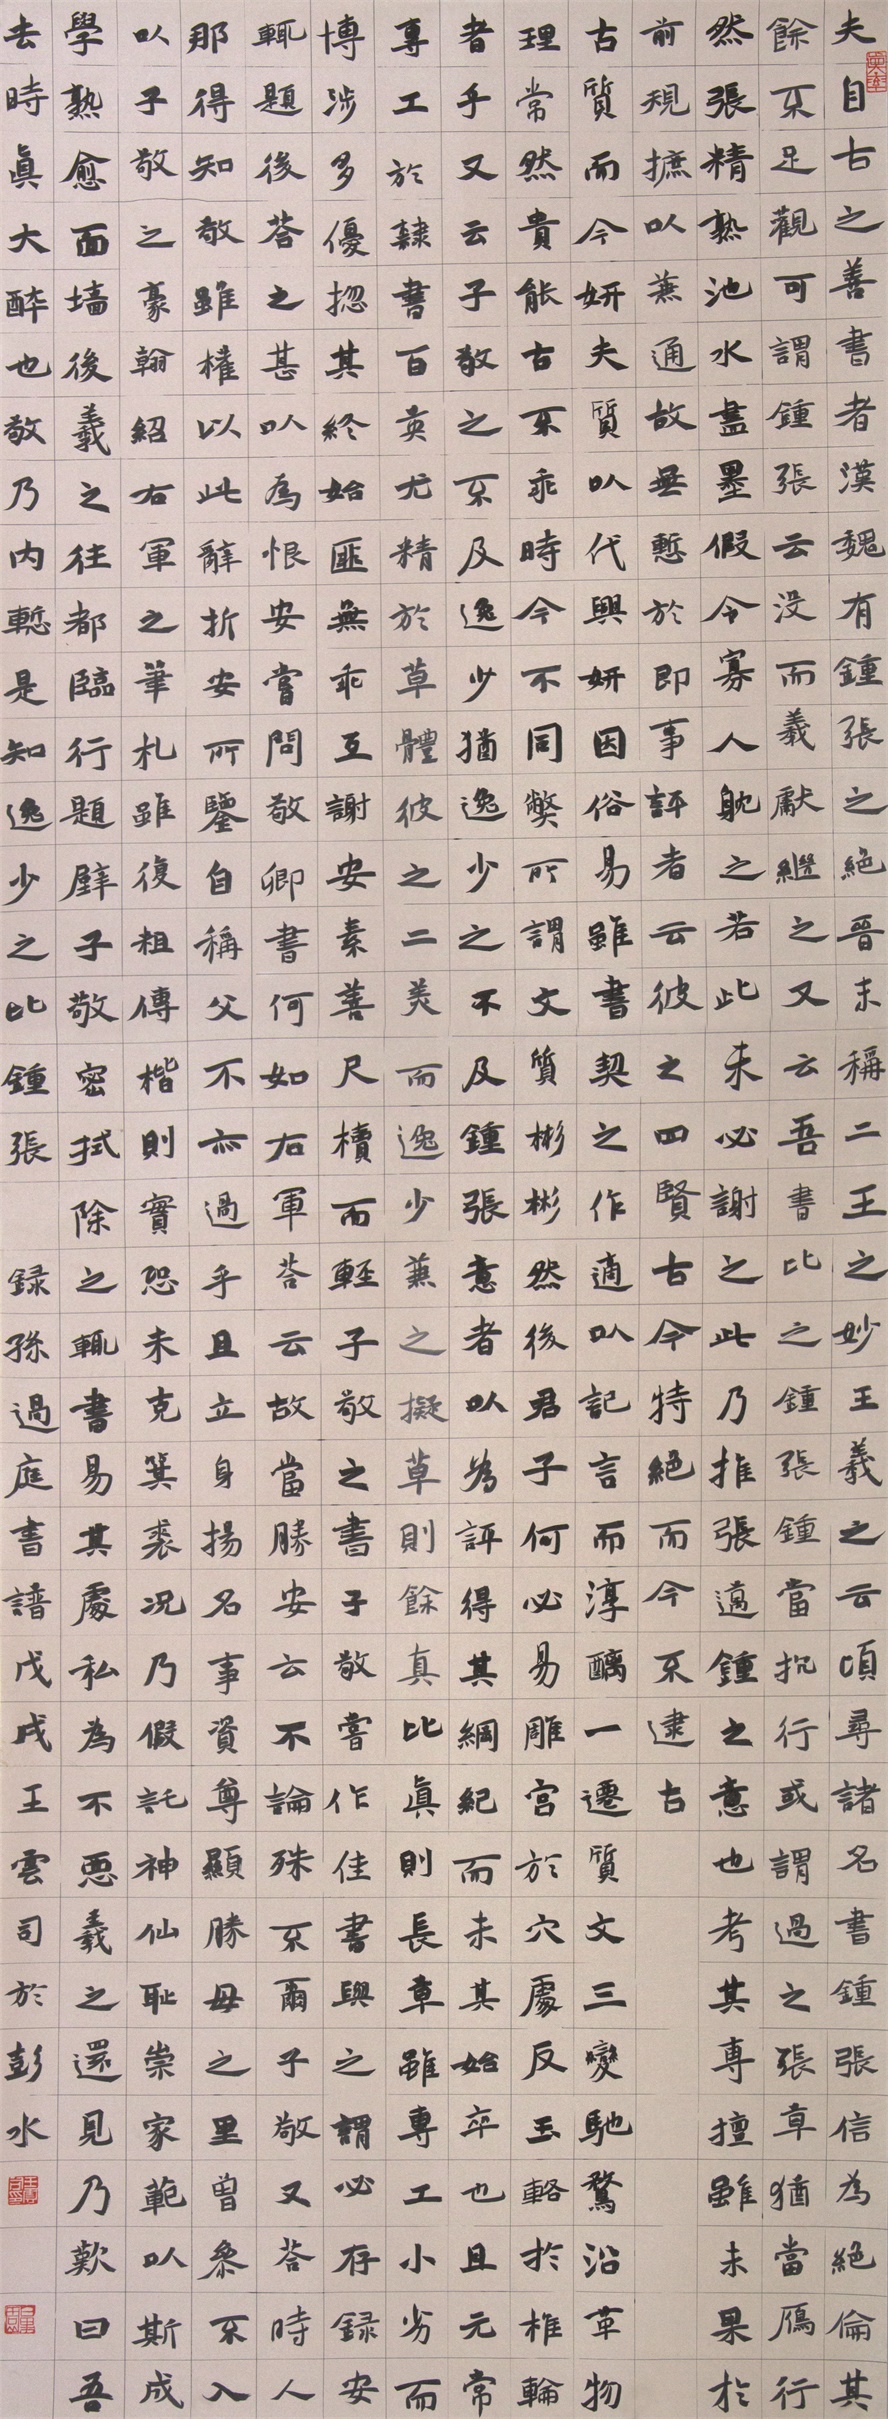 夫自古之善書者漢魏有鍾張之絕晉末稱二王之妙王羲之云頃尋諸名書鍾張信為絕倫其
餘不足觀可謂鍾張云没而羲獻繼之又云吾書比之鍾張鍾當抗行或謂過之張草猶當鴈行
然張精熟池水盡墨假令寡人躭之若此未必謝之此乃推張邁鍾之意也考其專擅雖未果於
前規摭以兼通故無慙於即事評者云彼之四賢古今特絕而今不逮古
古質而今妍夫質以代興妍因俗易雖書契之作適以記言而淳醨一遷質文三變馳騖沿革物
理常然貴能古不乖時今不同獘所謂文質彬彬然後君子何必易雕宮於穴處反玉輅於椎輪
者乎又云子敬之不及逸少猶逸少之不及鍾張意者以為評得其綱紀而未其始卒也且元常
專工於隸書百英尤精於草體彼之二美而逸少兼之擬草則餘真比真則長章雖專工小劣而
博涉多優揔其終始匪無乖互謝安素善尺牘而輕子敬之書子敬嘗作佳書與之謂必存録安
輒題後荅之甚以為恨安嘗問敬卿書何如右軍荅云故當勝安云不論殊不爾子敬又荅時人
那得知敬雖權以此辭折安所鑒自稱父不亦過乎且立身揚名事資尊顯勝母之里曾參不入
以子敬之豪翰紹右軍之筆札雖復粗傳楷則實恐未克箕裘況乃假託神仙恥崇家範以斯成
學熟愈面墻後羲之往都臨行題壁子敬密拭除之輒書易其處私為不惡羲之還見乃歎曰吾
去時真大醉也敬乃内慙是知逸少之比鍾張 録孫過庭書譜戊戌王雲司於彭水